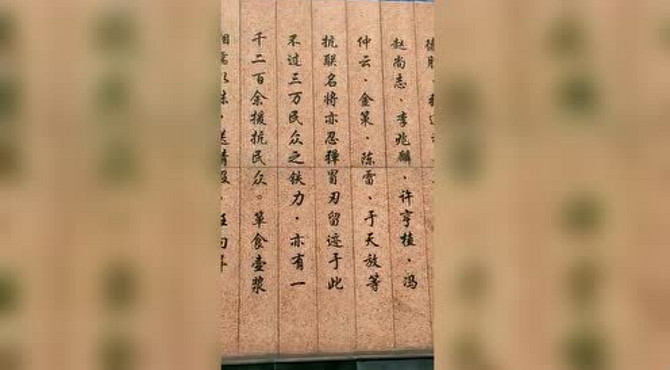 赵尚志、李兆麟、许亨植、冯
仲云、金策、陈雷、于天放等
抗联名将亦忍弹冒刃留迹于此
不过三万民众之铁力，亦有一
千二百余援抗民众。箪食壶浆
相濡以沫，送情报，